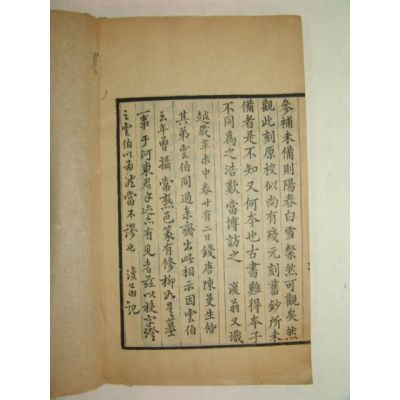 參補未備則陽春白雪粲然可觀矣然
觀此刻原校似尚有殘元刻舊鈔所未
備者是不知又何本也古書難得本子
不同為之浩歎當博訪之 復翁又識
越歲辛未中春廿有二日錢唐陳曼生偕
其弟雲伯同過余齋出此相示因雲伯
去年曾攝常熟邑篆有修柳如是墓
一事于河東君手迹亦有見者茲以校字證
之雲伯以為然當不謬也 復翁記